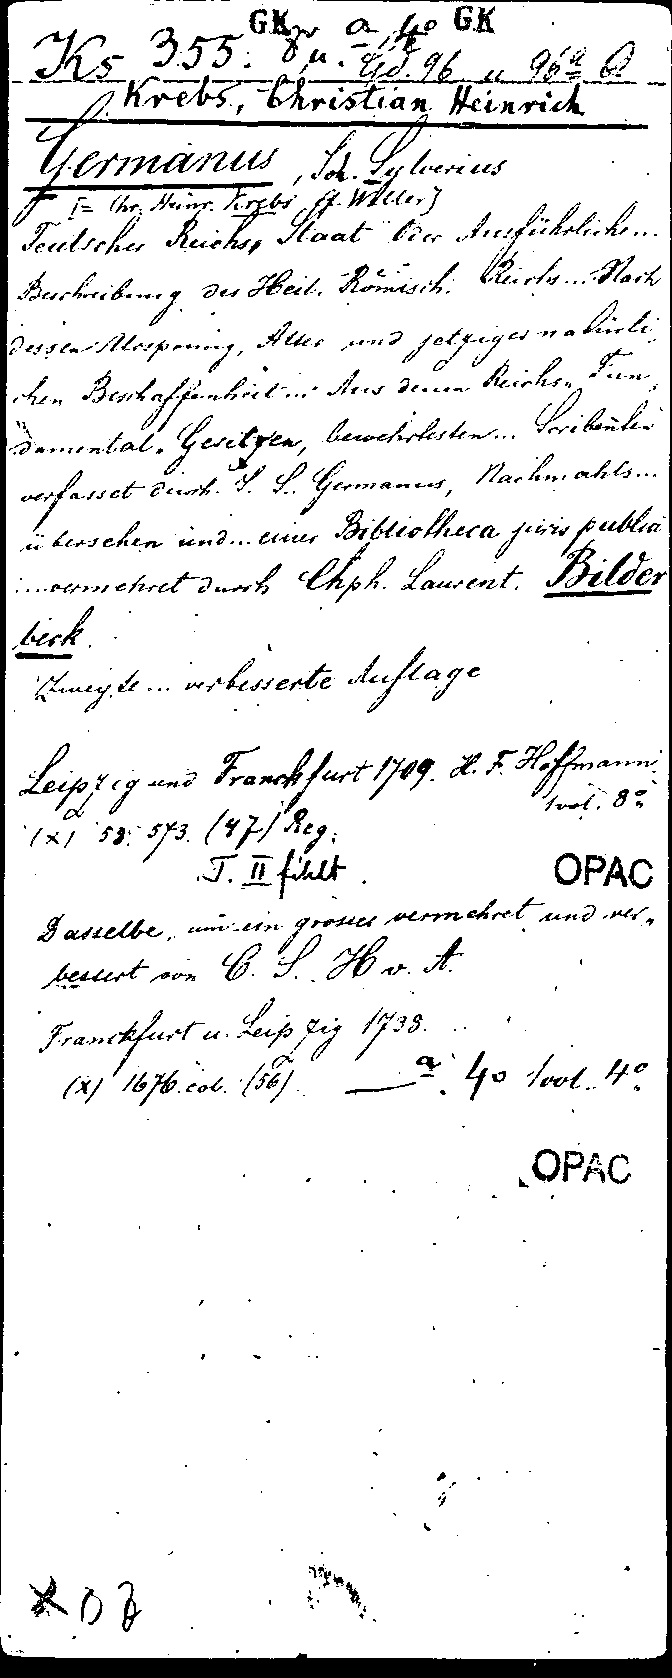 GK GK
Ks 355. 8° u. a, 4°
Gd. 96 u 96a
Krebs, Christian Heinrich
Germanus, Joh. Sylverius
[= Chr. Heinr. Krebs
Teutscher Reichs, Staat Oder Ausführliche...
Beschreibung des Heil. Römisch. Reichs... Nach
dessen Ursprung, Alter und jetziger natürli,
chen Beschaffenheit... Aus denen Reichs, Fun,
damental, Gesetzen, bewehrtesten... Scribenten
verfasset durch J. S. Germanus, Nachmahls...
übersehen und... einer Bibliotheca juris publici
...vermehret durch Chph. Laurent. Bilder
beck.
Zweyte... verbesserte Auflage
Leipzig und Franckfurt 1709. H. F. Hoffmann.
1 vol. 8°
(x) 58. 573. (47) Reg.
T. II fehlt.
OPAC
Dasselbe, um ein grosses vermehret und ver,
bessert von C. S. H v. A.
Franckfurt u. Leipzig 1738.
(x) 1676. col. (56). — a. 40 1 vol. 4°
OPAC